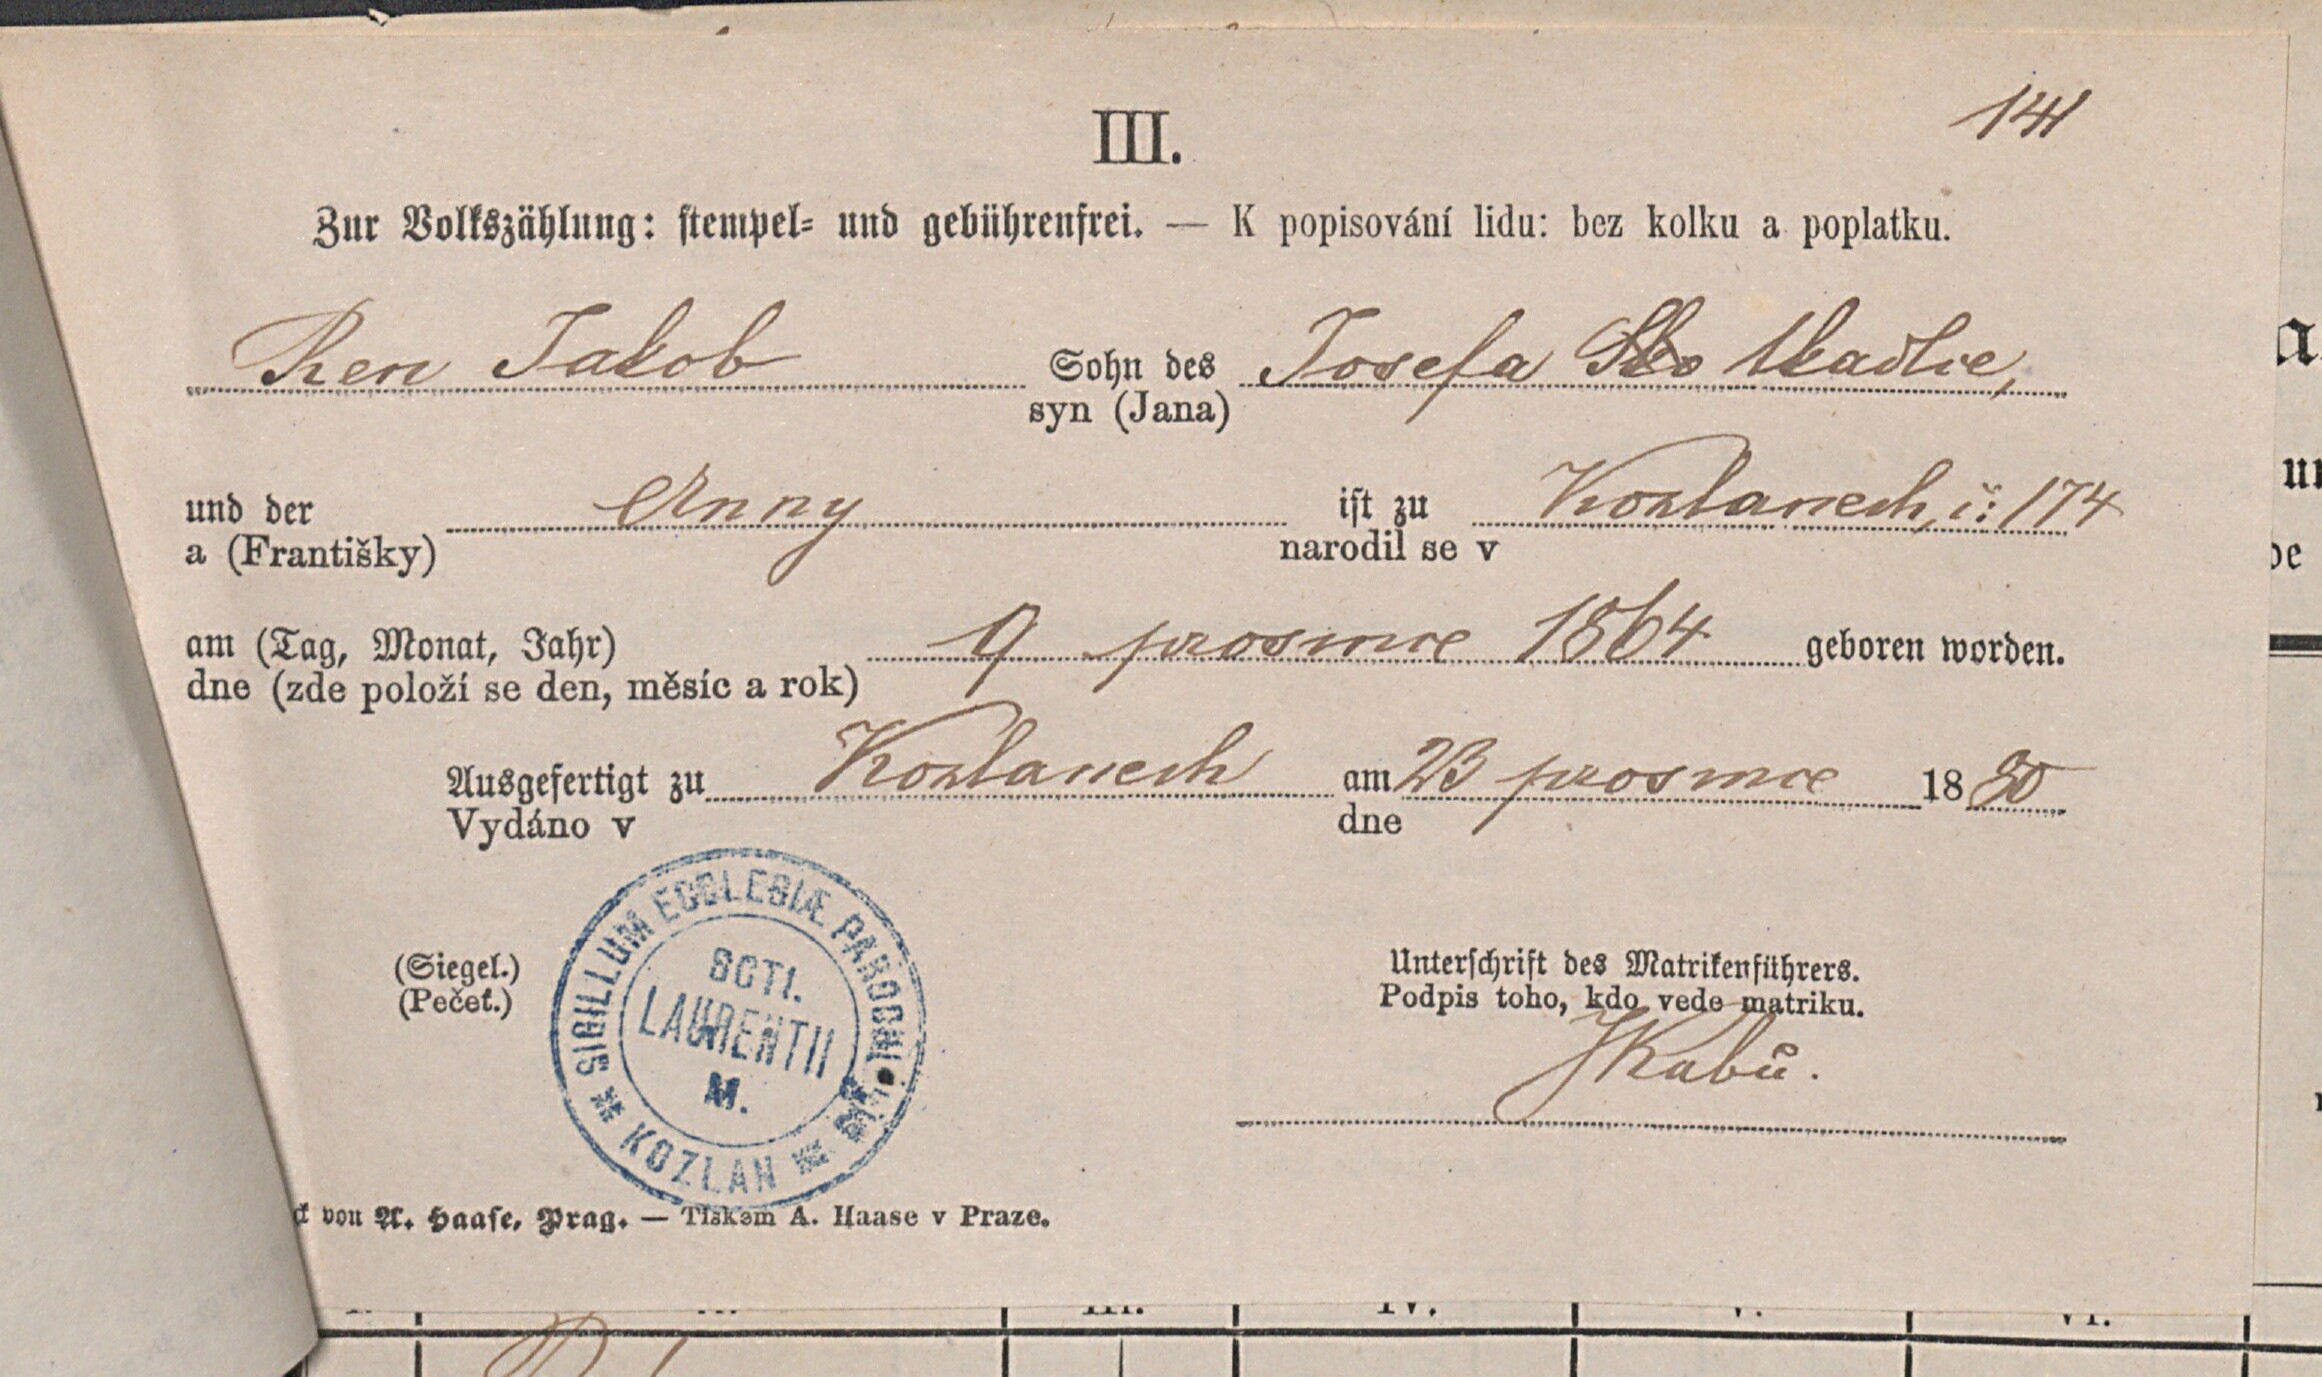 141
III.
Zur Volkszählung: stempel- und gebührenfrei. — K popisování lidu: bez kolku a poplatku.
Ren Jakob Sohn des Josefa tkadlce,
syn (Jana)
und der Anny ist zu Kozlanech, č: 174
a (Františky) narodil se v
am (Tag, Monat, Jahr) 9 prosince 1864 geboren worden.
dne (zde položí se den, měsíc a rok)
Ausgefertigt zu Kozlanech am 23 prosince 1880
Vydáno v dne
SIGILLUM ECCLESIÆ PAROCHI
SCTI.
LAURENTII
M.
KOZLAN
(Siegel.)
(Pečeť.)
Unterschrift des Matrikenführers.
Podpis toho, kdo vede matriku.
von A. Haase, Prag. — Tiskem A. Haase v Praze.
III. IV. V. VI.